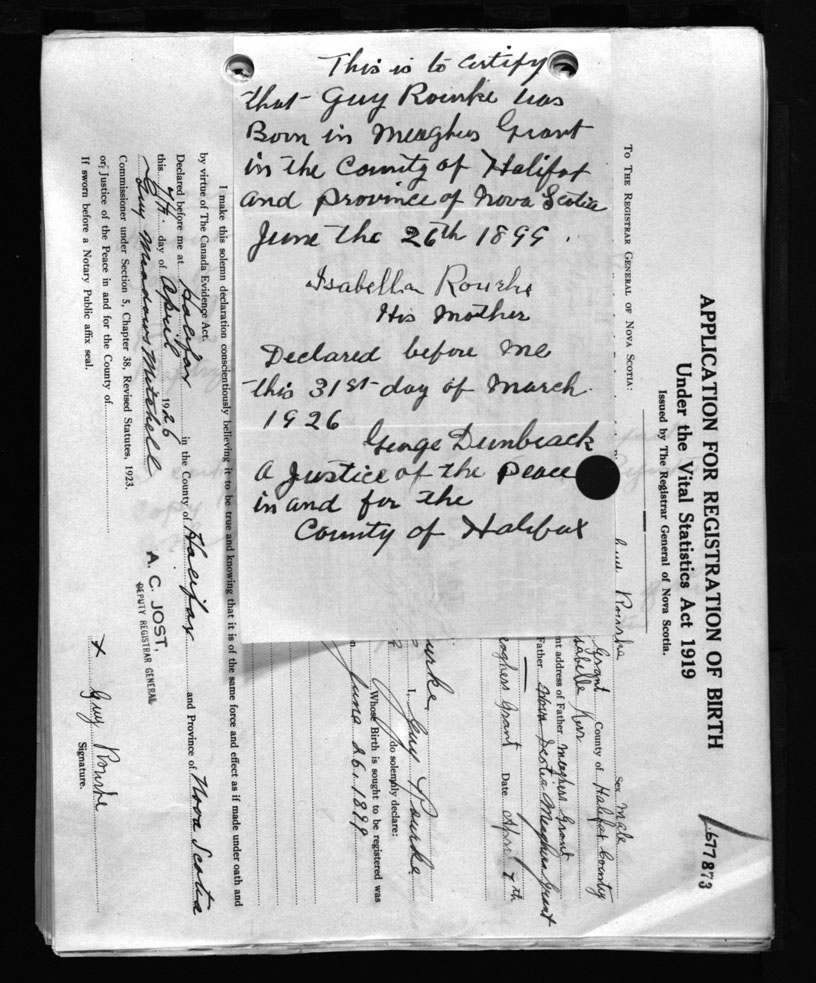 This is to certify
that Guy Rourke was
Born in Meaghers Grant
in the County of Halifax
and Province of Nova Scotia
June the 26th 1899.
Isabella Rourke
His Mother
Declared before me
this 31st day of March
1926
George Dunbrack
A Justice of the Peace
in and for the
County of Halifax
677873
APPLICATION FOR REGISTRATION OF BIRTH
Under the Vital Statistics Act 1919
Issued by The Registrar General of Nova Scotia.
TO THE REGISTRAR GENERAL OF NOVA SCOTIA:
Rourke Sex Male
Grant County of Halifax County
Kerr
nt address of Father Meaghers Grant
Father Nova Scotia Meaghers Grant
eaghers Grant Date April 7th
I, Guy Rourke
urke do solemnly declare:
Whose Birth is sought to be registered was
n June 26, 1899
I make this solemn declaration conscientiously believing it to be true and knowing that it is of the same force and effect as if made under oath and
by virtue of The Canada Evidence Act.
Declared before me at Halifax in the County of Halifax and Province of Nova Scotia
this 7th. day of April 1926
Guy Meadows Mitchell
A. C. JOST,
DEPUTY REGISTRAR GENERAL
Commissioner under Section 5, Chapter 38, Revised Statutes, 1923.
or Justice of the Peace in and for the County of
If sworn before a Notary Public affix seal.
x Guy Rourke
Signature.